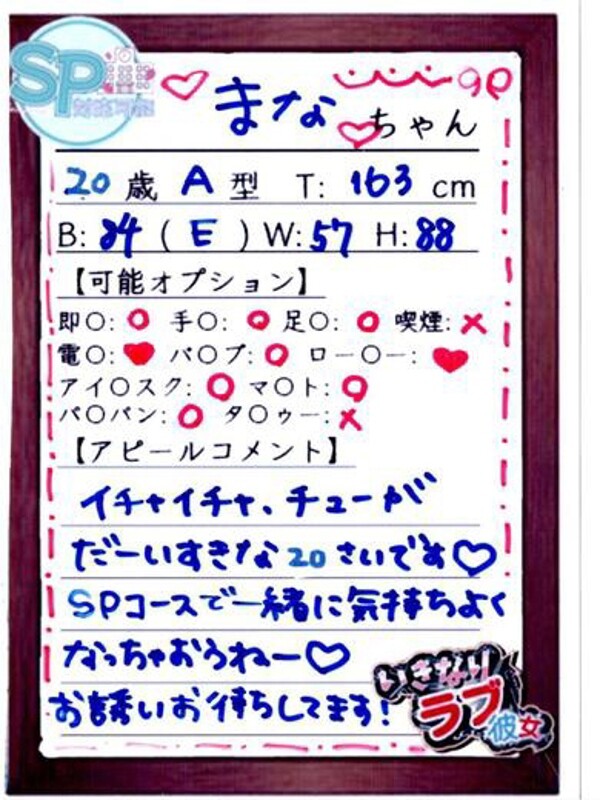 SP
対応可能
まなちゃん
20歳 A型 T: 163 cm
B: 84 ( E ) W: 57 H: 88
【可能オプション】
即〇: ○ 手〇: ○ 足〇: ○ 喫煙: ×
電〇: ♥ バ〇ブ: ○ ロー〇ー: ♥
アイ〇スク: ○ マ〇ト: ○
パ〇パン: ○ タ〇ゥー: ×
【アピールコメント】
イチャイチャ、チューが
だーいすきな20さいです♡
SPコースで一緒に気持ちよく
なっちゃおうねー♡
お誘いお待ちしてます!
いきなり
ラブ彼女